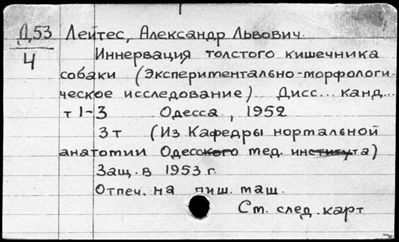 Д53 Лейтес, Александр Львович.
4
Иннервация толстого кишечника
собаки (Экспериментально-морфологи-
ческое исследование) Дисс... канд...
т 1-3 Одесса, 1952
3т (Из Кафедры нормальной
анатомии Одесского мед. института)
Защ. в 1953 г.
Отпеч. на пиш. маш.
См. след. карт